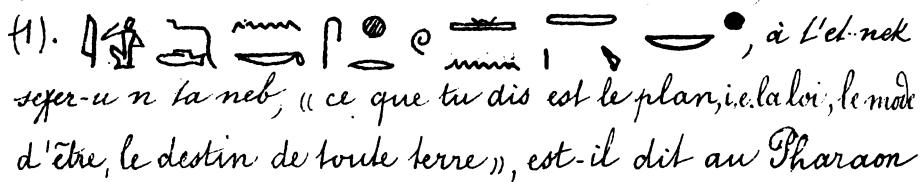 (1). , à t'et-nek
sexer-u n ta neb, « ce que tu dis est le plan, i.e. la loi, le mode
d'être, le destin de toute terre », est-il dit au Pharaon